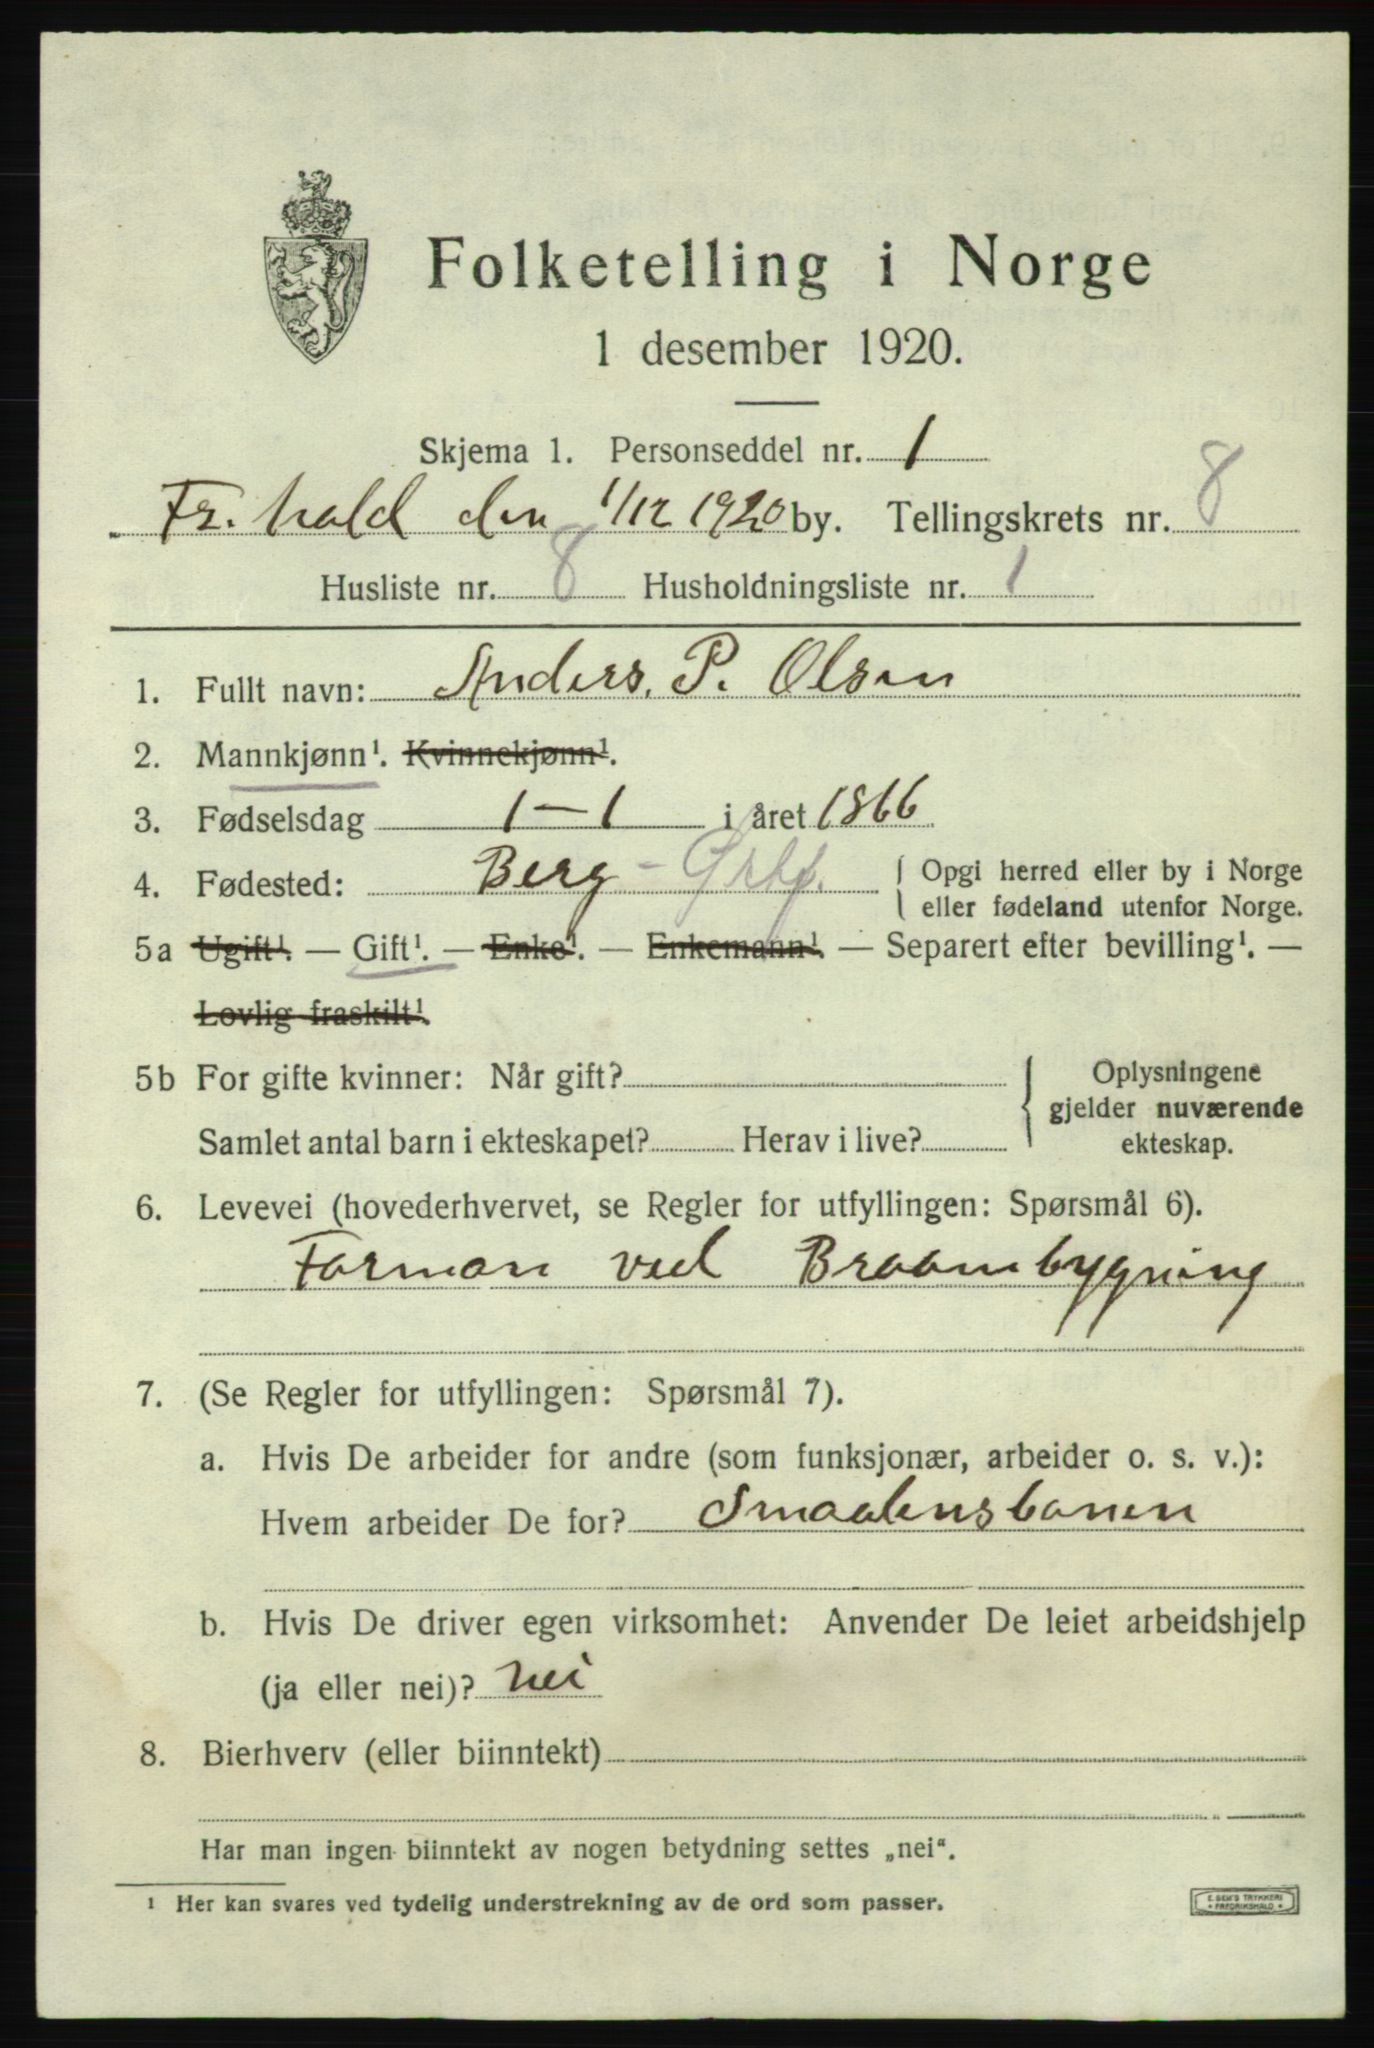 Folketelling i Norge
1 desember 1920.
Skjema 1. Personseddel nr. 1
Fr.hald den 1/12 1920 by. Tellingskrets nr. 8
Husliste nr. 8 Husholdningsliste nr. 1
1. Fullt navn: Anders. P. Olsen
2. Mannkjønn¹. Kvinnekjønn¹.
3. Fødselsdag 1-1 i året 1866
4. Fødested: Berg - { Opgi herred eller by i Norge
eller fødeland utenfor Norge.
5a Ugift¹. — Gift¹. — Enke¹. — Enkemann¹. — Separert efter bevilling¹. —
Lovlig fraskilt¹.
5b For gifte kvinner: Når gift? } Oplysningene
gjelder nuværende
Samlet antal barn i ekteskapet? Herav i live? ekteskap.
6. Levevei (hovederhvervet, se Regler for utfyllingen: Spørsmål 6).
Forman ved Broombygning
7. (Se Regler for utfyllingen: Spørsmål 7).
a. Hvis De arbeider for andre (som funksjonær, arbeider o. s. v.):
Hvem arbeider De for? Smaalensbanen
b. Hvis De driver egen virksomhet: Anvender De leiet arbeidshjelp
(ja eller nei)? nei
8. Bierhverv (eller biinntekt)
Har man ingen biinntekt av nogen betydning settes „nei“.
¹ Her kan svares ved tydelig understrekning av de ord som passer.
E. SEM'S TRYKKERI
FREDRIKSHALD